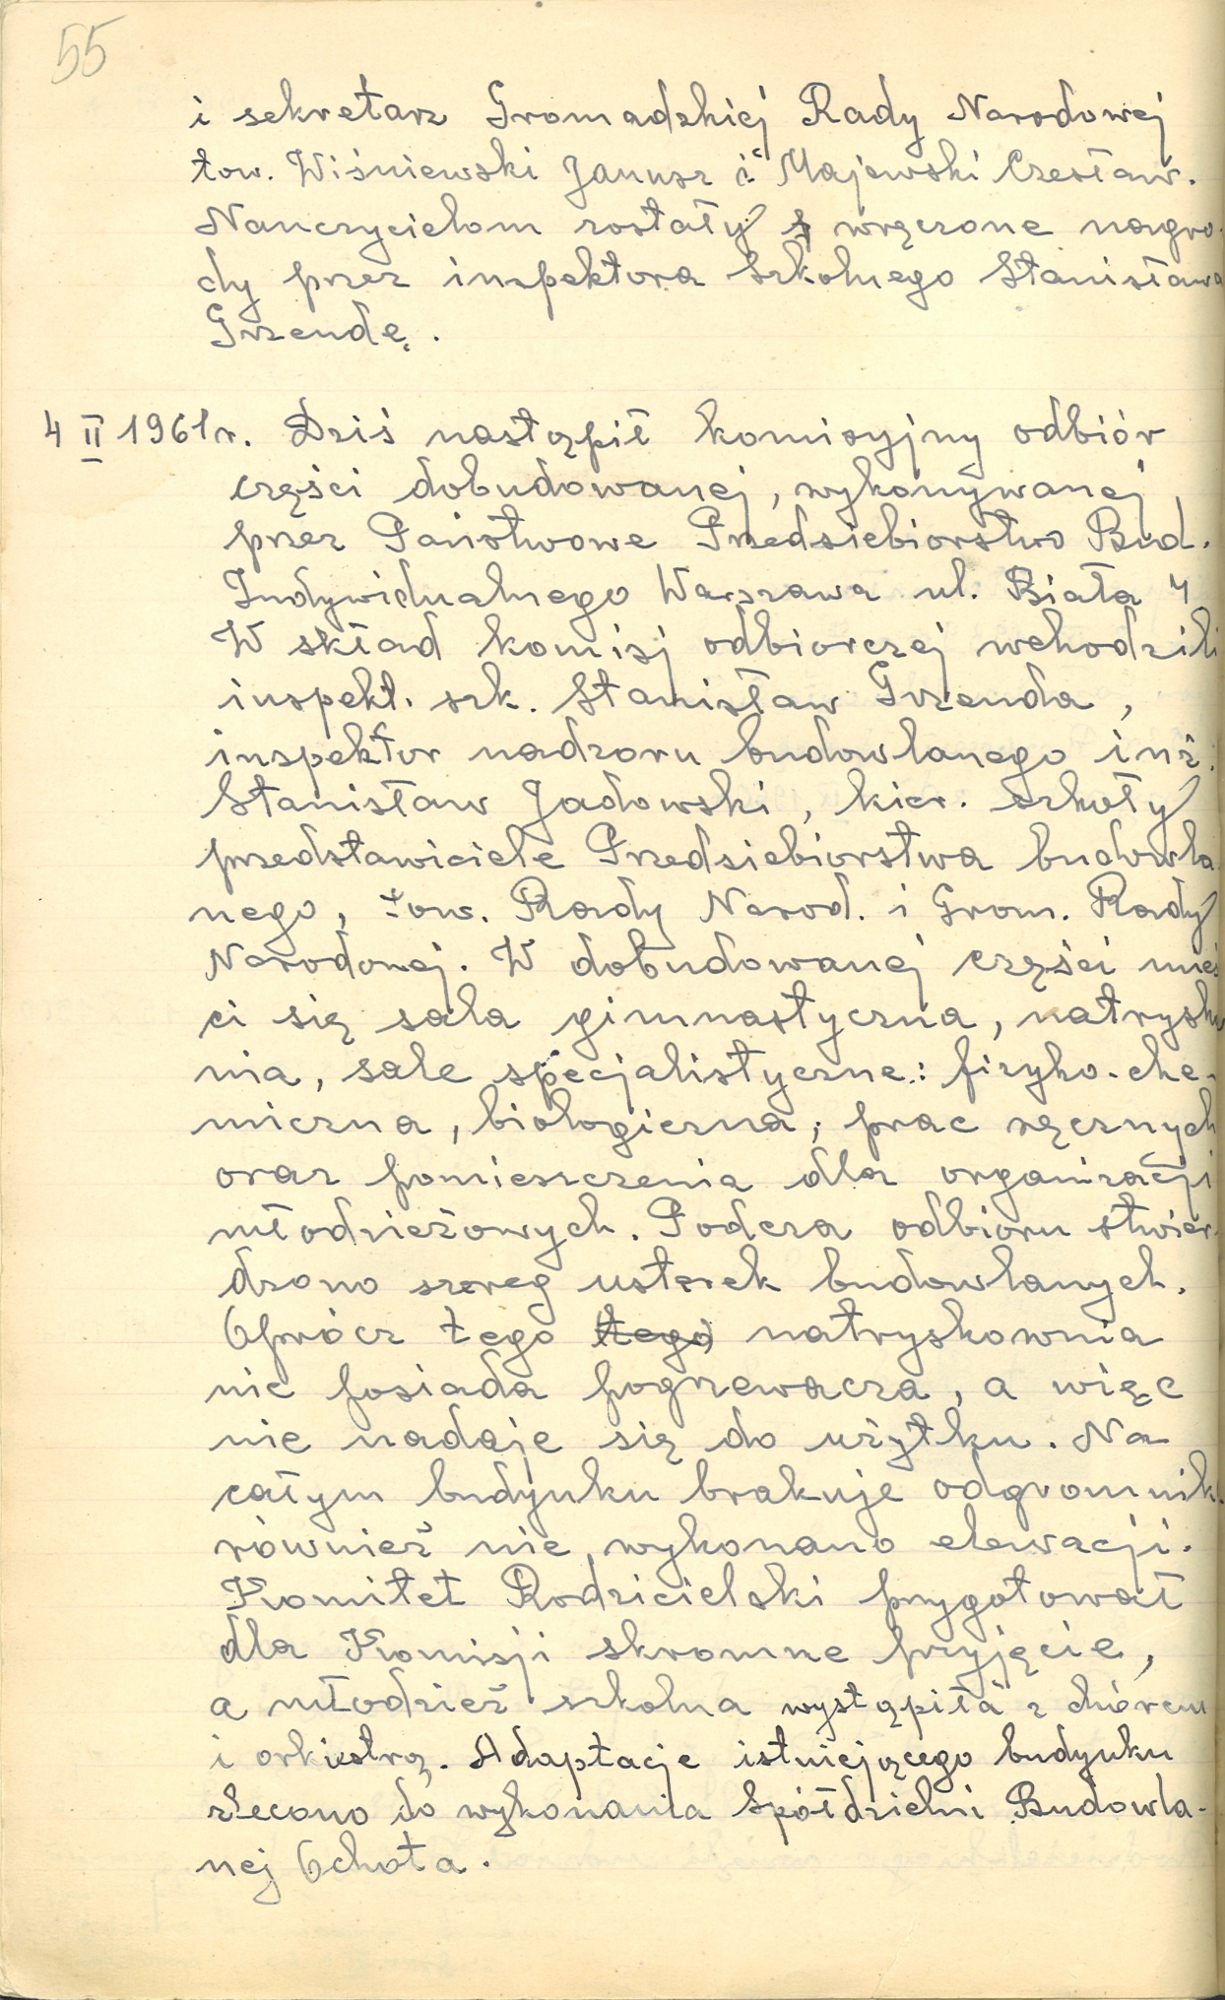 55
i sekretarz Gromadzkiej Rady Narodowej
tow. Wiśniewski Janusz i Majewski Czesław.
Nauczycielom zostały wręczone nagro-
dy przez inspektora szkolnego Stanisława
Grzendę.
4 II 1961 r. Dziś nastąpił komisyjny odbiór
części dobudowanej, wykonywanej
przez Państwowe Przedsiebiorstwo Bud.
Indywidualnego Warszawa ul. Biała 4
W skład komisj odbiorczej wchodzili
inspekt. szk. Stanisław Grzenda,
inspektor nadzoru budowlanego inż.
Stanisław Jadowski, kier. szkoły
przedstawiciele Przedsiebiorstwa budowla
nego, Pow. Rady Narod. i Grom. Rady
Narodowej. W dobudowanej części mieś
ci się sala gimnastyczna, natrysko
nia, sale specjalistyczne: fizyko-che-
miczna, biologiczna, prac ręcznych
oraz pomieszczenia dla organizacji
młodzieżowych. Podcza odbioru stwier-
dzono szereg usterek budowlanych.
Oprócz tego tego natryskownia
nie posiada pogrzewacza, a więc
nie nadaje się do użytku. Na
całym budynku brakuje odgromnik.
również nie wykonano elewacji.
Komitet Rodzicielski przygotował
dla Komisji skromne przyjęcie,
a młodzież szkolna wystąpiła z chórem
i orkiestrą. Adaptacje istniejącego budynku
zlecono do wykonania Spółdzielni Budowla-
nej Ochota.